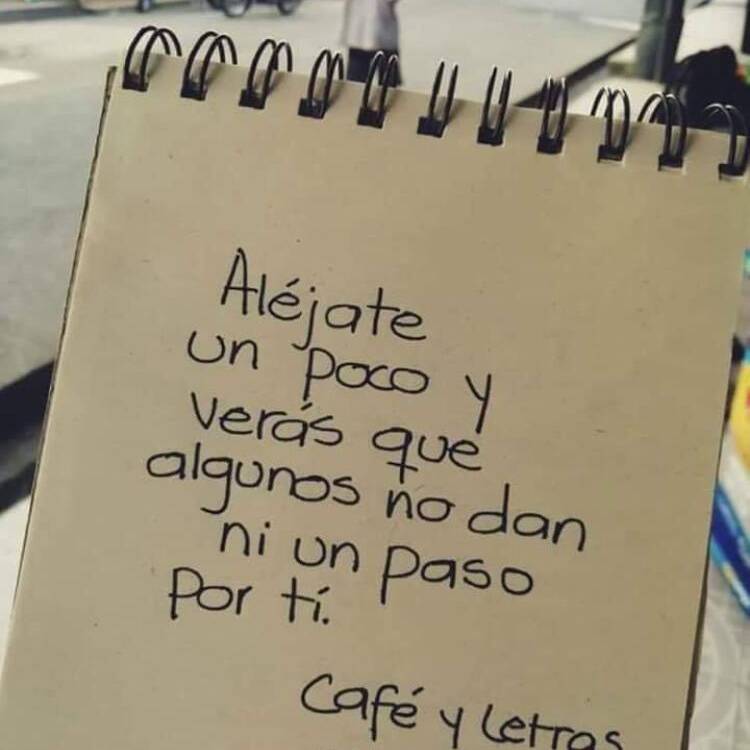 Aléjate
un poco y
verás que
algunos no dan
ni un paso
Por tí.
Café y Letras